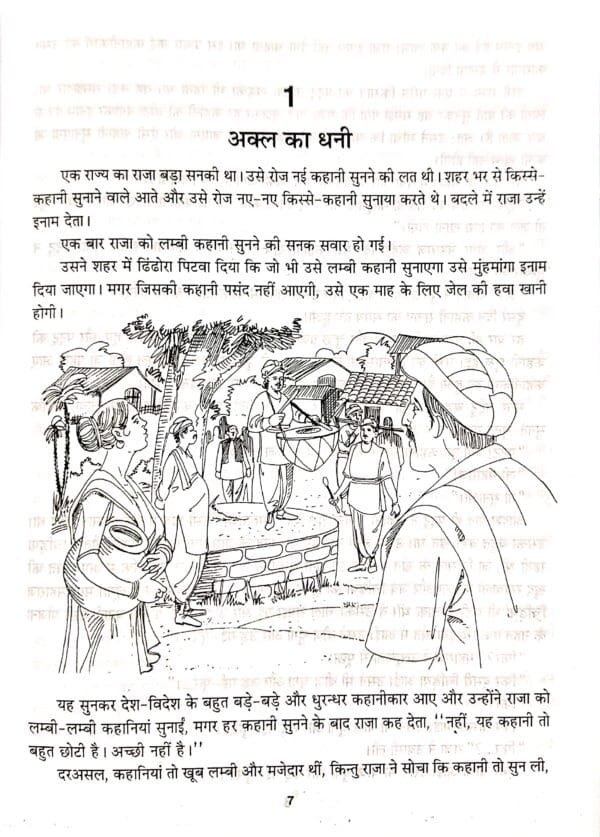 1
अक्ल का धनी
एक राज्य का राजा बड़ा सनकी था। उसे रोज नई कहानी सुनने की लत थी। शहर भर से किस्से-
कहानी सुनाने वाले आते और उसे रोज नए-नए किस्से-कहानी सुनाया करते थे। बदले में राजा उन्हें
इनाम देता।
एक बार राजा को लम्बी कहानी सुनने की सनक सवार हो गई।
उसने शहर में ढिंढोरा पिटवा दिया कि जो भी उसे लम्बी कहानी सुनाएगा उसे मुंहमांगा इनाम
दिया जाएगा। मगर जिसकी कहानी पसंद नहीं आएगी, उसे एक माह के लिए जेल की हवा खानी
होगी।
यह सुनकर देश-विदेश के बहुत बड़े-बड़े और धुरन्धर कहानीकार आए और उन्होंने राजा को
लम्बी-लम्बी कहानियां सुनाईं, मगर हर कहानी सुनने के बाद राजा कह देता, ‘‘नहीं, यह कहानी तो
बहुत छोटी है। अच्छी नहीं है।’’
दरअसल, कहानियां तो खूब लम्बी और मजेदार थीं, किन्तु राजा ने सोचा कि कहानी तो सुन ली,
7